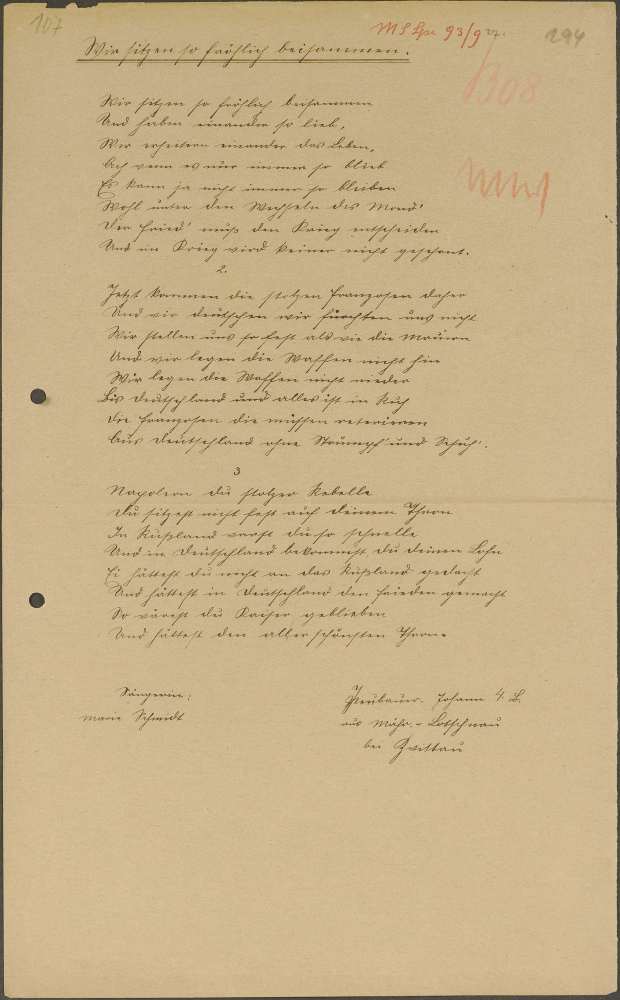 107
294
B08
Wir sitzen so fröhlich beisammen.
Wir sitzen so fröhlich beisammen
Und haben einander so lieb,
Wir erheitern einander das Leben,
Ach wenn es nur immer so blieb
Es kann ja nicht immer so bleiben
Wohl unter den Wechseln des Mond'
Der Fried' muß den Krieg entscheiden
Und im Krieg wird keiner nicht geschont.
2.
Jetzt kommen die stolzen Franzosen daher
Und wir deutschen wir fürchten uns nicht
Wir stellen uns so fest als wie die Mauern
Und wir legen die Waffen nicht hin
Wir legen die Waffen nicht nieder
Bis Deutschland und alles ist in Ruh
Die Franzosen die müssen reterieren
Aus Deutschland ohne Strümpf' und Schuh'.
3
Napoleon du stolzer Rebelle
Du sitzest nicht fest auf deinem Thron
In Rußland warst du so schnelle
Und in Deutschland bekommst du deinen Lohn
Ei hättest du nicht an das Rußland gedacht
Und hättest in Deutschland den Frieden gemacht
So wärest du Kaiser geblieben
Und hättest den allerschönsten Throne
Sängerin:
Marie Schmidt
Neubauer Johann 4. B.
aus Mähr.-Lotschnau
bei Zwittau